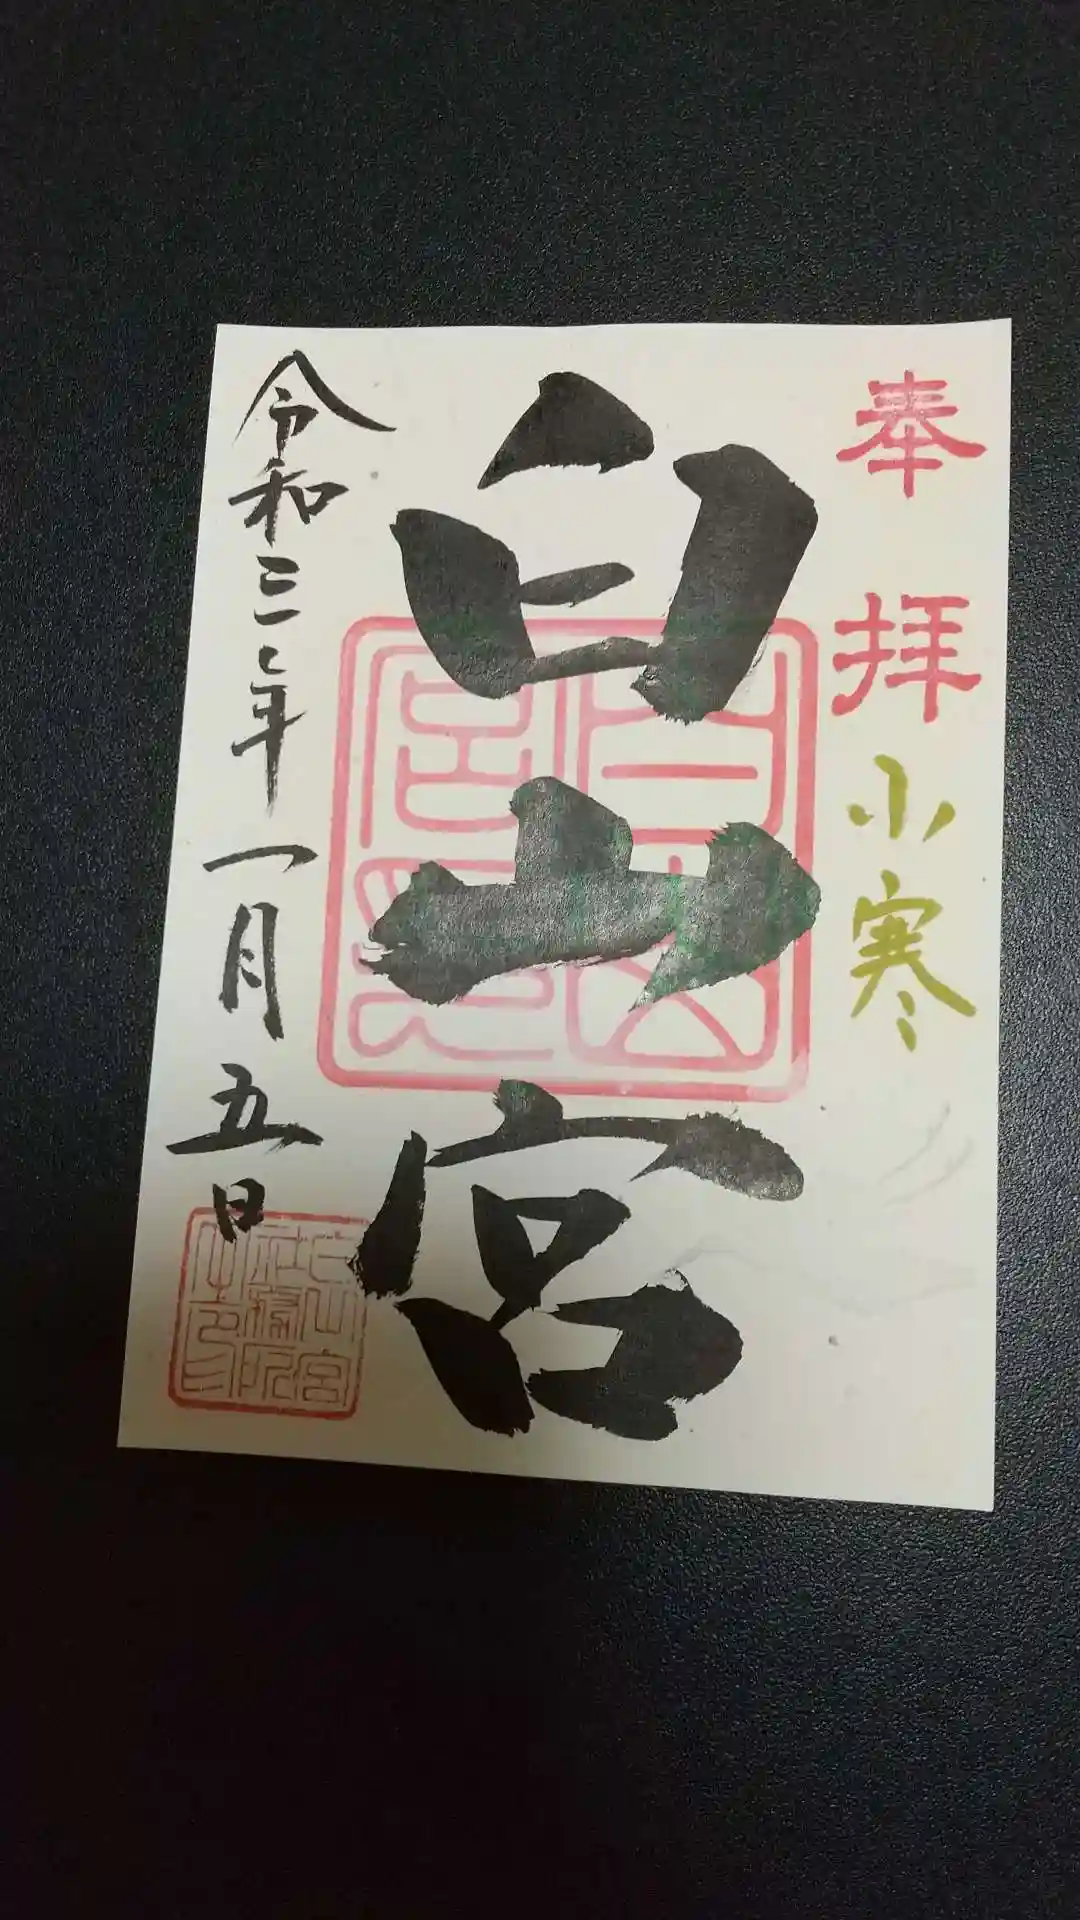 奉拝
小寒
白山宮
白山宮印
令和三年一月五日
白山宮
社務所
之印